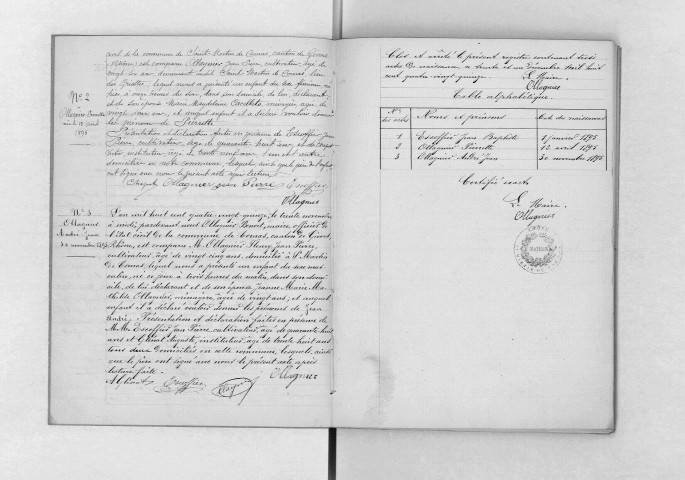 civil de la commune de Saint Martin de Cornas, canton de Givors
(Rhône) est comparu Ollagnier Jean Pierre, cultivateur, âgé de
vingt six ans, demeurant audit Saint Martin de Cornas, lieu
lequel nous a présenté un enfant du sexe féminin
né à onze heures du soir, dans son domicile, de lui, déclarant
et de son épouse Marie Magdeleine ménagère, âgée de
vingt ans, et auquel enfant il a déclaré vouloir donner
les prénoms de Pierrette
Présentation et déclaration faites en présence de Escoffier Jean
Pierre, cultivateur, âgé de quarante huit ans, et de
instituteur, âgé de trente ans, l'un et l'autre
domiciliés en cette commune, lesquels ainsi que le père de l'enfant
ont signé avec nous le présent acte après lecture
Ollagnier Jean Pierre Escoffier
Ollagnier
N° 2
Ollagnier Pierrette
né le 12 avril
1895
N° 3
Ollagnier
André Jean
30 novembre 1895
L'an mil huit cent quatre-vingt quinze, le trente novembre
à midi, pardevant nous Ollagnier Benoît, maire, officier de
l'état civil de la commune de Cornas, canton de Givors,
Rhône, est comparu M. Ollagnier Fleury Jean Pierre,
cultivateur, âgé de vingt cinq ans, domicilié à St Martin
de Cornas, lequel nous a présenté un enfant du sexe mas-
culin, né ce jour à trois heures du matin, dans son domi-
cile, de lui déclarant et de son épouse Jeanne Marie Ma-
thilde ménagère, âgée de vingt ans, et auquel
enfant il a déclaré vouloir donner les prénoms de Jean
André. Présentation et déclaration faites en présence de
MM. Escoffier Jean Pierre, cultivateur, âgé de quarante huit
ans et Auguste, instituteur, âgé de trente huit ans
tous deux domiciliés en cette commune, lesquels, ainsi
que le père ont signé avec nous le présent acte après
lecture faite.
Escoffier Ollagnier
Clos et arrêté le présent registre contenant trois
actes de naissance le trente et un décembre mil huit
cent quatre-vingt quinze.
Le Maire,
Ollagnier
Table alphabétique.
Nos des actes Noms et prénoms Date des naissances
1 Escoffier Jean Baptiste 5 janvier 1895
2 Ollagnier Pierrette 12 avril 1895
3 Ollagnier André Jean 30 novembre 1895
Certifié exact
Le Maire,
Ollagnier